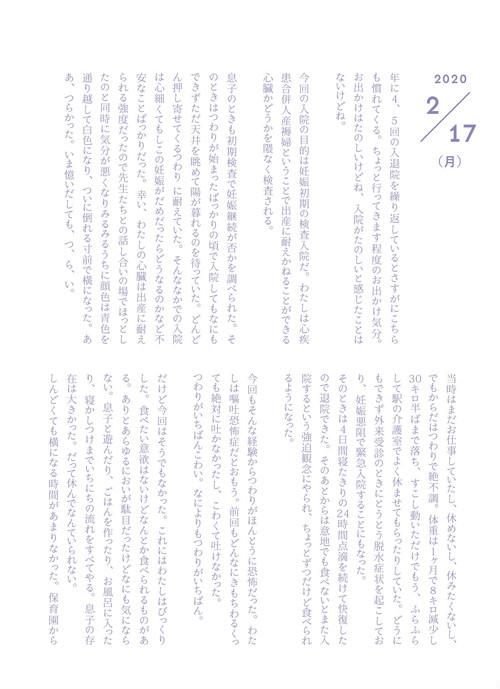 2020
2/17
(月)
年に4、5回の入退院を繰り返しているとさすがにこちら
も慣れてくる。ちょっと行ってきます程度のお出かけ気分。
お出かけはたのしいけどね、入院がたのしいと感じたことは
ないけどね。
今回の入院の目的は妊娠初期の検査入院だ。わたしは心疾
患合併人産褥婦ということで出産に耐えかねることができる
心臓かどうかを隈なく検査される。
息子のときも初期検査で妊娠継続が否かを調べられた。そ
のときはつわりが始まったばっかりの頃で入院してもなにも
できずただ天井を眺めて陽が暮れるのを待っていた。どんど
ん押し寄せてくるつわり に耐えていた。そんななかでの入院
は心細くてもしこの妊娠がだめだったらどうなるのかなど不
安なことばっかりだった。幸い、わたしの心臓は出産に耐え
られる強度だったので先生たちとの話し合いの場でほっとし
たのと同時に気分が悪くなりみるみるうちに顔色は青色を
通り越して白色になり、ついに倒れる寸前で横になった。あ
あ、つらかった。いま憶いだしても、つ、ら、い。
当時はまだお仕事していたし、休めないし、休みたくないし、
でもからだはつわりで絶不調。体重は1ヶ月で8キロ減少し
30キロ半ばまで落ち、すこし動いただけでもう、ふらふら
して駅の介護室でよく休ませてもらったりしていた。どうに
もできず外来受診のときにとうとう脱水症状を起こしてお
り、妊娠悪阻で緊急入院することにもなった。
そのときは4日間寝たきりの24時間点滴を続けて快復した
ので退院できた。そのあとからは意地でも食べないとまた入
院するという強迫観念にやられ、ちょっとずつだけど食べられ
るようになった。
今回もそんな経験からつわりがほんとうに恐怖だった。わた
しは嘔吐恐怖症だとおもう。前回もどんなにきもちわるくっ
ても絶対に吐かなかったし、こわくて吐けなかった。
つわりがいちばんこわい。なによりもつわりがいちばん。
だけど今回はそうでもなかった。これにはわたしはびっくり
した。食べたい意欲はないけどなんとか食べられるものがあ
る。ありとあらゆるにおいが駄目だったけどなにも気になら
ない。息子と遊んだり、ごはんを作ったり、お風呂に入った
り、寝かしつけまでいちにちの流れをすべてやる。息子の存
在は大きかった。だって休んでなんていられない。
しんどくても横になる時間があまりなかった。保育園から